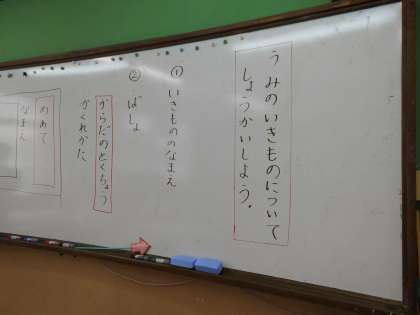 うみのいきものについて
しょうかいしよう。
① いきもののなまえ
② ばしょ
からだのとくちょう
かくれかた
めあて
なまえ